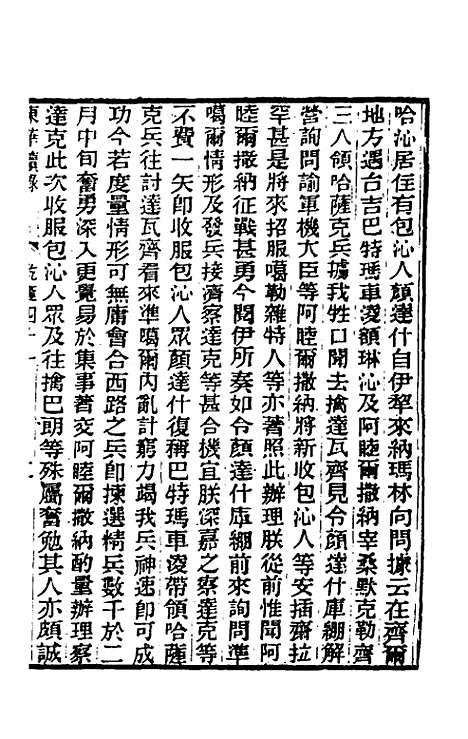 哈沁居住有包沁人顏達什自伊犂來納瑪林向問據云在齊爾
地方遇台吉巴特瑪車淩額琳沁及阿睦爾撒納宰桑默克勒齊
三人領哈薩克兵擄我牲口聞去擒達瓦齊見令顏達什庫綳解
營詢問諭軍機大臣等阿睦爾撒納將新收包沁人等安插齋拉
罕甚是將來招服噶勒雜特人等亦著照此辦理朕從前惟聞阿
睦爾撒納征戰甚勇今閱伊所奏如令顏達什庫綳前來詢問準
噶爾情形及發兵接濟察達克等甚合機宜朕深嘉之察達克等
不費一矢卽收服包沁人眾顏達什復稱巴特瑪車淩帶領哈薩
克兵往討達瓦齊看來準噶爾內亂計窮力竭我兵神速卽可成
功今若度量情形可無庸會合西路之兵卽揀選精兵數千於二
月中旬奮勇深入更覺易於集事著交阿睦爾撒納酌量辦理察
達克此次收服包沁人眾及往擒巴朗等殊屬奮勉其人亦頗誠
東華續錄 乾隆四十一